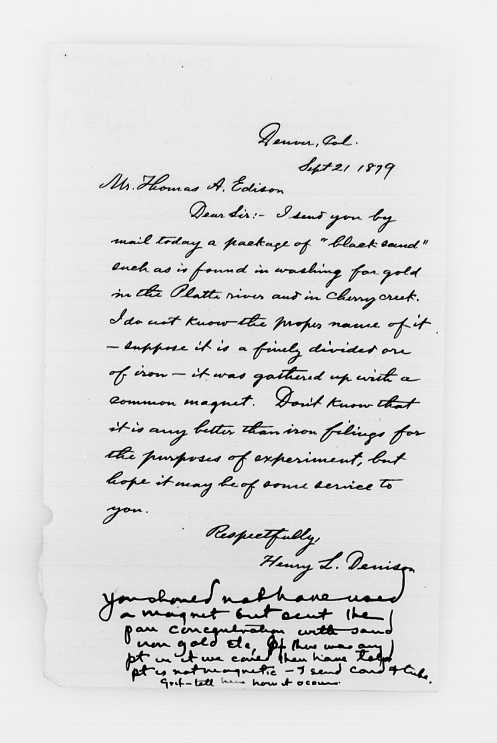 Denver, Col.
Sept 21 1879
Mr. Thomas A. Edison
Dear Sir:- I send you by
mail today a package of "black sand"
such as is found in washing for gold
in the Platte river and in Cherry creek.
I do not know the proper name of it
- suppose it is a finely divided ore
of iron - it was gathered up with a
common magnet. Don't know that
it is any better than iron filings for
the purposes of experiment, but
hope it may be of some service to
you.
Respectfully,
Henry L. Denison
you should not have used
a magnet but sent the
pan concentration with sand
iron gold etc, if there was any
pt in it we could then have told
pt is not magnetic - I send card &
tell how it occurs